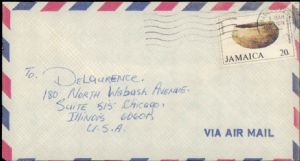 JAMAICA 20c
To: DeLaurence.
180 North Wabash Avenue.
Suite 515 Chicago.
Illinois 60601
U.S.A.
VIA AIR MAIL